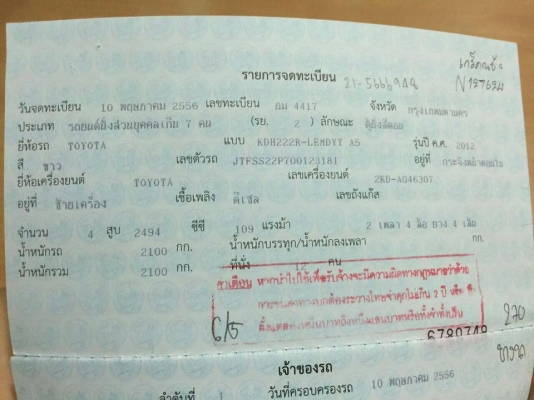 รายการจดทะเบียน 21-5666948
N127624
วันจดทะเบียน 10 พฤษภาคม 2556 เลขทะเบียน อม 4417 จังหวัด กรุงเทพมหานคร
ประเภท รถยนต์นั่งส่วนบุคคลเกิน 7 คน (รย. 2) ลักษณะ ตู้นั่งสี่ตอน
ยี่ห้อรถ TOYOTA แบบ KDH222R-LEMDYT A5 รุ่นปี ค.ศ. 2012
สี ขาว เลขตัวรถ JTFSS22P700123181 อยู่ที่
ยี่ห้อเครื่องยนต์ TOYOTA เลขเครื่องยนต์ 2KD-A046307
อยู่ที่ ซ้ายเครื่อง เชื้อเพลิง ดีเซล เลขถังแก๊ส
จำนวน 4 สูบ 2494 ซีซี 109 แรงม้า 2 เพลา 4 ล้อ ยาง 4 เส้น
น้ำหนักรถ 2100 กก. น้ำหนักบรรทุก/น้ำหนักลงเพลา กก.
น้ำหนักรวม 2100 กก. ที่นั่ง 12 คน
คำเตือน หากนำไปใช้เพื่อรับจ้างจะมีความผิดทางกฎหมายว่าด้วย
การขนส่งทางบกต้องระวางโทษจำคุกไม่เกิน 2 ปี หรือ
ตั้งแต่สองหมื่นบาทถึงหนึ่งแสนบาทหรือทั้งจำทั้งปรับ
6790748
270
เจ้าของรถ
ลำดับที่ 1 วันที่ครอบครองรถ 10 พฤษภาคม 2556